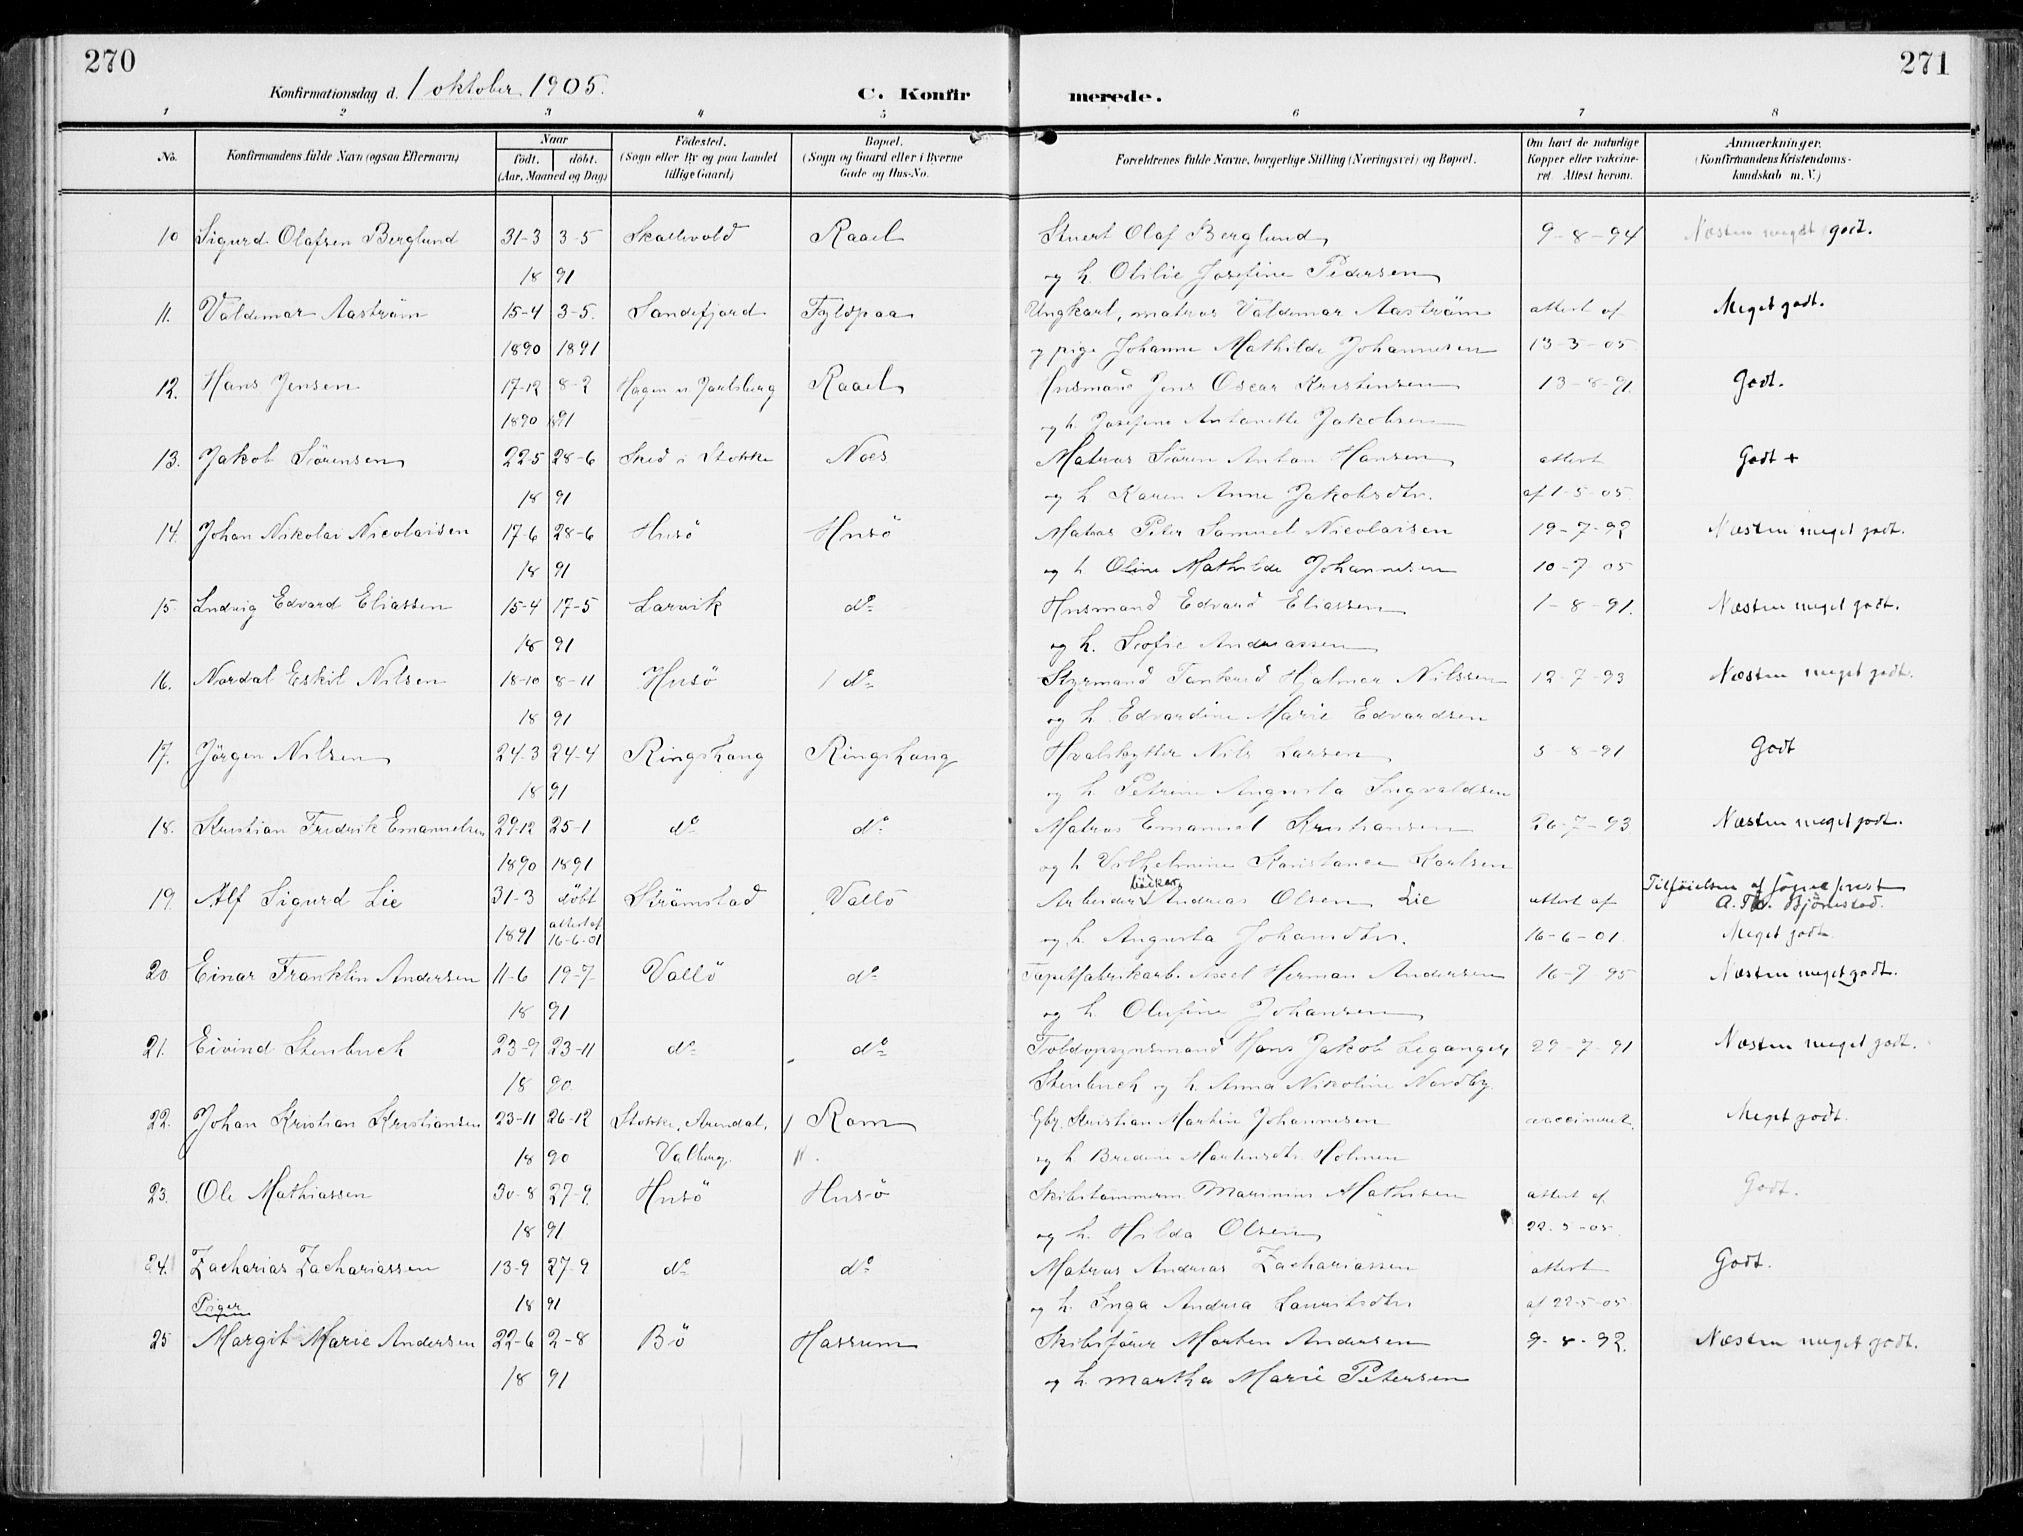 270
271
Konfirmationsdag d. 1 oktober 1905.
C. Konfirmerede.
1 2 3 4 5 6 7 8
No.
Konfirmandens fulde Navn (ogsaa Efternavn)
Naar
født. døbt.
(Aar, Maaned og Dag)
Fødested.
(Sogn eller By og paa Landet
tillige Gaard)
Bopæl.
(Sogn og Gaard eller i Byerne
Gade og Hus-No.
Forældrenes fulde Navne, borgerlige Stilling (Næringsvei) og Bopæl.
Om havt de naturlige
Kopper eller vakcine-
ret. Attest herom.
Anmærkninger.
(Konfirmandens Kristendoms-
kundskab m. V.)
10 Sigurd Olafsen Berglund 31-3 3-5 Skallevold Raael Stuert Olaf Berglund 9-8-94 Næsten meget godt.
18 91 og h. Otilie Josefine Pedersen
11. Valdemar Aaström 15-4 3-5. Sandefjord Fyldpaa Ungkarl, matros Valdemar Aaström attest af Meget godt.
1890 1891 og pige Johanne Mathilde Johannesen 13-3-05
12. Hans Jensen 17-12 8-2 Hagen v Jarlsberg Raael Husmand Jens Oscar Kristensen 13-8-91. Godt.
1890 1891 og h. Josefine Antonette Jakobsen
13. Jakob Sörensen 22-5 28-6 Sked i Stokke Noes Matros Sören Anton Hansen attest Godt +
18 91 og h Karen Anne Jakobsdtr. af 1-5-05.
14. Johan Nikolai Nicolaisen 17-6 28-6 Husö Husö Matros Peter Samuel Nicolaisen 19-7-92 Næsten meget godt.
18 91 og h Oline Mathilde Johannesen 10-7 05
15. Ludvig Edvard Eliassen 15-4 17-5 Larvik do Husmand Edvard Eliassen 1-8-91. Næsten meget godt.
18 91 og h. Sofie Andreassen
16. Nordal Eskil Nilsen 18-10 8-11 Husö do Styrmand Tankred Hjalmar Nilssen 12-7-93 Næsten meget godt.
18 91 og h. Edvardine Marie Edvardsen
17. Jörgen Nilsen 24-3 24-4 Ringshaug Ringshaug Hvalskytter Nils Larsen 3-8-91 Godt
18 91 og h Petrine Augusta Ingvaldsen
18. Kristian Fredrik Emanuelsen 29-12 25-1 do do Matros Emanuel Kristiansen 26-7-93 Næsten meget godt.
1890 1891 og h Vilhelmine Konstance Karlsen
19. Alf Sigurd Lie 31-3 döbt Strömstad Vallö Arbeider bödker Andreas Olsen Lie attest af Tilföielsen af sogneprest
A. Th. Björnstad.
1891 attest af 16-6-01 og h. Augusta Johansdtr. 16-6-01. Meget godt
20 Einar Franklin Andersen 11-6 19-7 Vallö do Tapetfabrikarb. Axel Herman Andersen 16-7-95 Næsten meget godt.
18 91 og h. Olufine Johansen
21. Eivind Stenbuch 23-9 23-11 do do Toldopsynsmand Hans Jakob Leganger 29-7-91 Næsten meget godt.
18 90. Stenbuch og h. Anna Nikoline Nordby.
22. Johan Kristian Kristiansen 23-11 26-12 Stokke, Arendal, Ram Gbr. Kristian Martin Johannesen vaccineret. Meget godt.
18 90 Valberg. og h. Bredine Martensdtr. Holmen
23. Ole Mathiassen 30-8 27-9. Husö Husö Skibstömmerm. Marinius Mathisen attest af Godt.
18 91 og h. Hilda Olsen 22-5-05.
24. Zacharias Zachariassen 13-9 27-9 do do Matros Andreas Zachariassen attest Godt.
Piger 18 91 og h. Inga Andrea Lauritsdtr. af 22-5-05
25 Margit Marie Andersen 22-6 2-8 Bö Hassum Skibsförer Morten Andersen 9-8-92. Næsten meget godt.
18 91 og h. Martha Marie Petersen